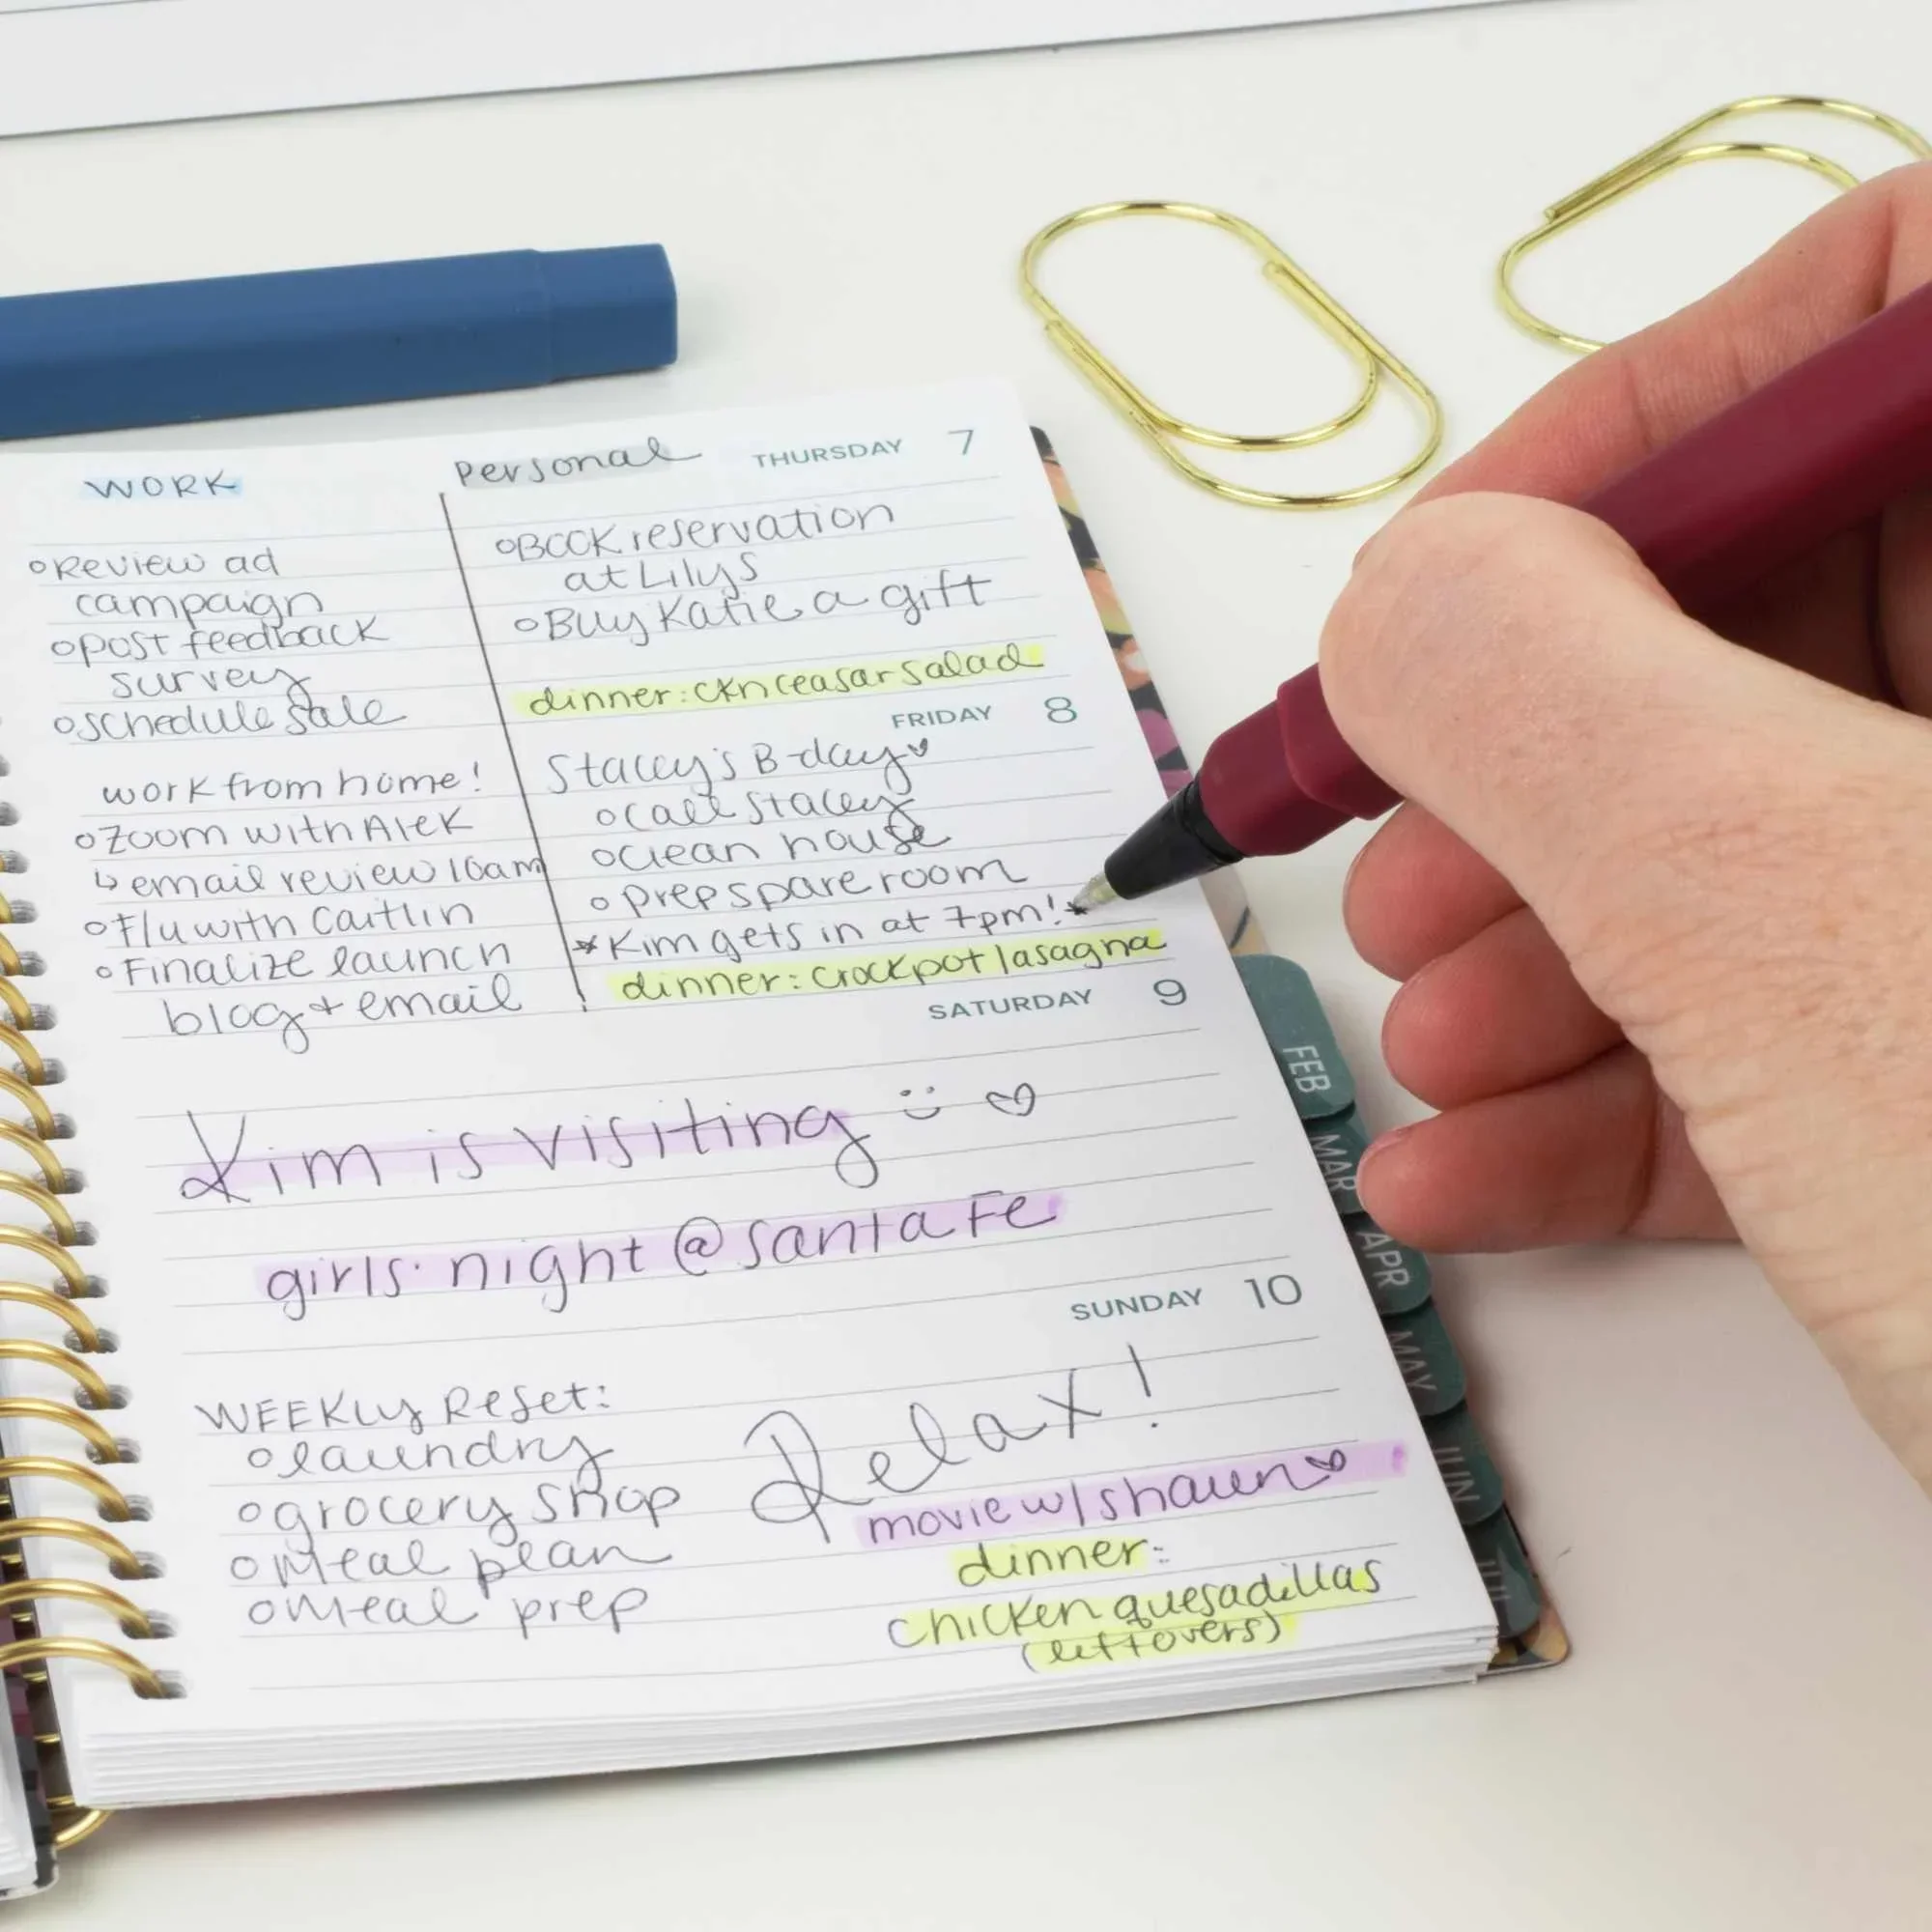 WORK
Personal
THURSDAY 7
o Review ad
campaign
o post feedback
survey
o schedule sale
o BOOK reservation
at Lilys
o Buy Katie a gift
dinner: ckn ceasar salad
FRIDAY 8
work from home!
o Zoom with Alek
↳ email review 10am
o F/u with Caitlin
o Finalize launch
blog + email
Stacey's B-day ♥
o call Stacey
o clean house
o prep spare room
* Kim gets in at 7pm! *
dinner: crockpot lasagna
SATURDAY 9
Kim is visiting :) ♡
girls night @ Santa Fe
SUNDAY 10
WEEKLY Reset:
o laundry
o grocery shop
o meal plan
o meal prep
Relax!
movie w/ shaun ♥
dinner:
chicken quesadillas
(leftovers)
FEB
MAR
APR
MAY
JUN
JUL